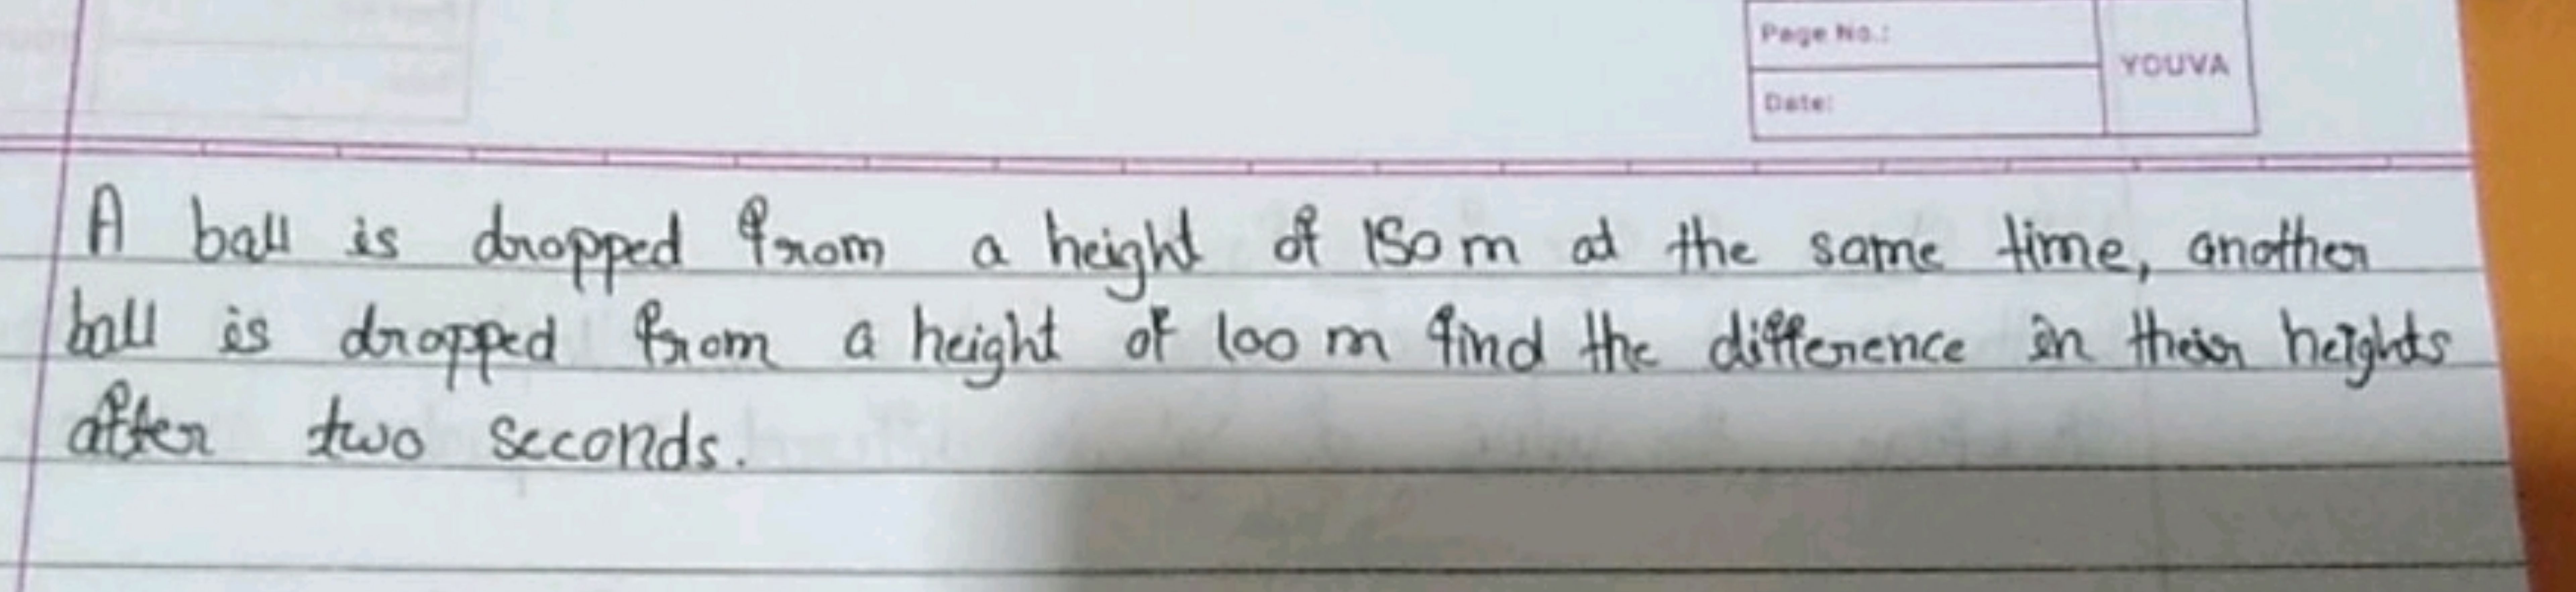 Page No.:
YOUVA
Date:
A ball is dropped from a height of 150 m at the same time, another
ball is dropped from a height of 100 m find the difference in their heights
after two seconds.